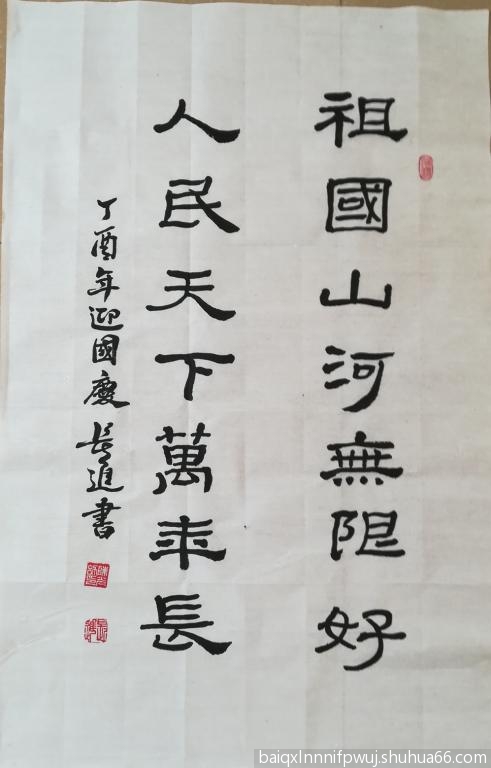 祖國山河無限好
人民天下萬年長
丁酉年迎國慶 長進書
baiqxlnnnifpwuj.shuhua66.com